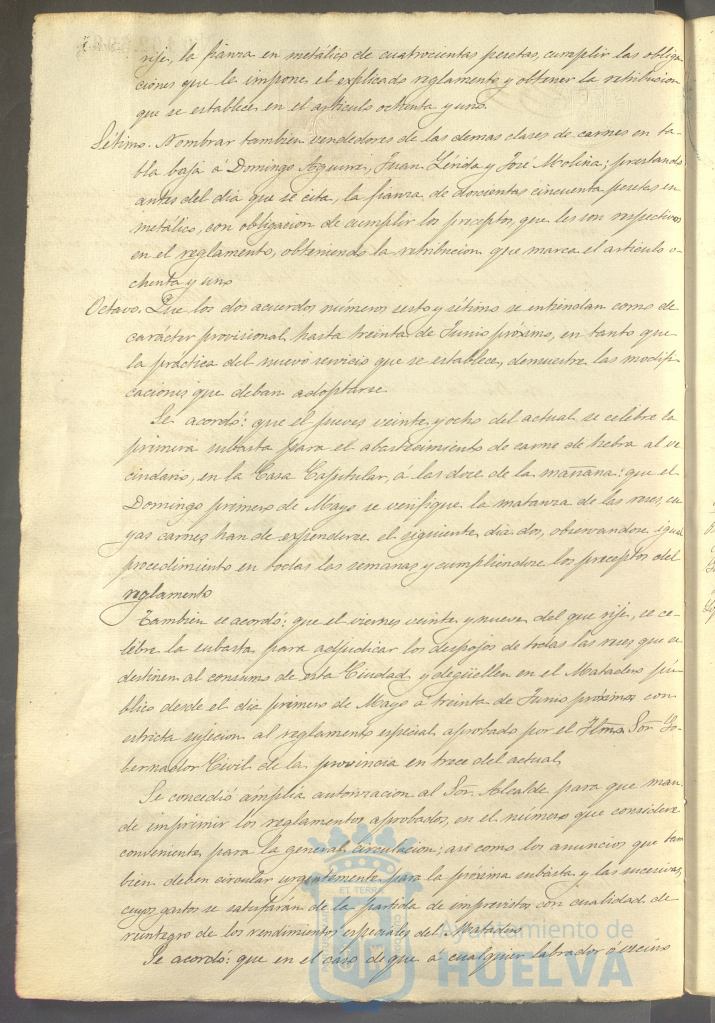 rije, la fianza en metálico de cuatrocientas pesetas, cumplir las obliga-
ciones que le impone el explicado reglamento y obtener la retribucion
que se establece en el articulo ochenta y uno
Sétimo. Nombrar tambien vendedores de las demas clases de carnes en ta-
bla baja á Domingo Aguirre, Juan Lérida y José Molina; prestando
antes del dia que se cita, la fianza de doscientas cincuenta pesetas en
metálico, con obligacion de cumplir los preceptos, que les son respectivos
en el reglamento, obteniendo la retribucion que marca el articulo o-
chenta y uno
Octavo. Que los dos acuerdos números sesto y sétimo se entiendan como de
carácter provisional hasta treinta de Junio próximo, en tanto que
la práctica del nuevo servicio que se establece, demuestre las modifi-
caciones que deban adoptarse
Se acordó: que el jueves veinte y ocho del actual se celebre la
primera subasta para el abastecimiento de carne de hebra al ve-
cindario, en la Casa Capitular, á las doce de la mañana: que el
Domingo primero de Mayo se verifique la matanza de las reses, cu-
yas carnes han de expenderse el siguiente dia dos, observandose igual
procedimiento en todas las semanas y cumpliendose los preceptos del
reglamento
Tambien se acordó: que el viernes veinte y nueve del que rije, se ce-
lebre la subasta para adjudicar los despojos de todas las reses que se
destinen al consumo de esta Ciudad y degüellen en el Matadero pú-
blico desde el dia primero de Mayo a treinta de Junio próximos con
estricta sujecion al reglamento especial aprobado por el Iltmo Sor Go-
bernador Civil de la provincia en trece del actual
Se concedió ámplia autorizacion al Sor. Alcalde para que man-
de imprimir los reglamentos aprobados, en el número que considere
conveniente, para la general circulacion; asi como los anuncios que tam-
bien deben circular urgentemente para la próxima subasta y las sucesivas,
cuyos gastos se satisfarán de la partida de imprevistos con cualidad de
reintegro de los rendimientos especiales del Matadero
Se acordó: que en el caso de que á cualquier labrador ó vecino
ET TERRÆ
Ayuntamiento de
HUELVA